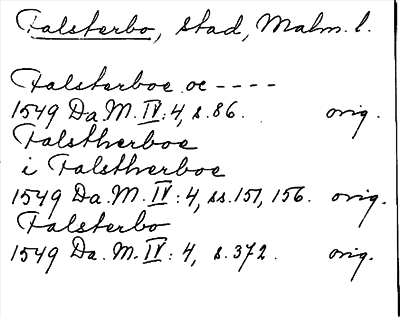 Falsterbo, stad, Malm. l.
Falsterboe oc ----
1549 Da. M. IV: 4, s. 86. orig.
Falstherboe
i Falstherboe
1549 Da. M. IV: 4, ss. 151, 156. orig.
Falsterbo
1549 Da. M. IV: 4, s. 372. orig.